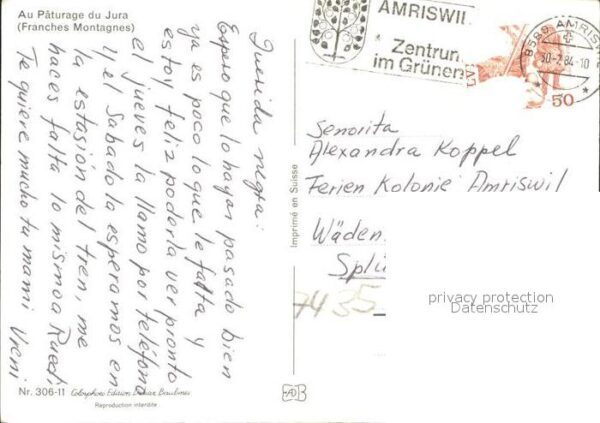 Au Pâturage du Jura
(Franches Montagnes)
Querida negra:
Espero que lo hayas pasado bien
ya es poco lo que le falta y
estoy feliz poderla ver pronto
el jueves la llamo por teléfono
y el Sabado la esperamos en
la estasión del tren, me
haces falta lo mismoa Ruedi
Te quiere mucho tu mami Vreni
Nr. 306-11
Reproduction interdite
Imprimé en Suisse
AMRISWIL
Zentrum
im Grünen
8580 AMRISW
30-7.84-10
50
Senorita
Alexandra Koppel
Ferien Kolonie Amriswil
Wäden
Splü
7435
privacy protection
Datenschutz